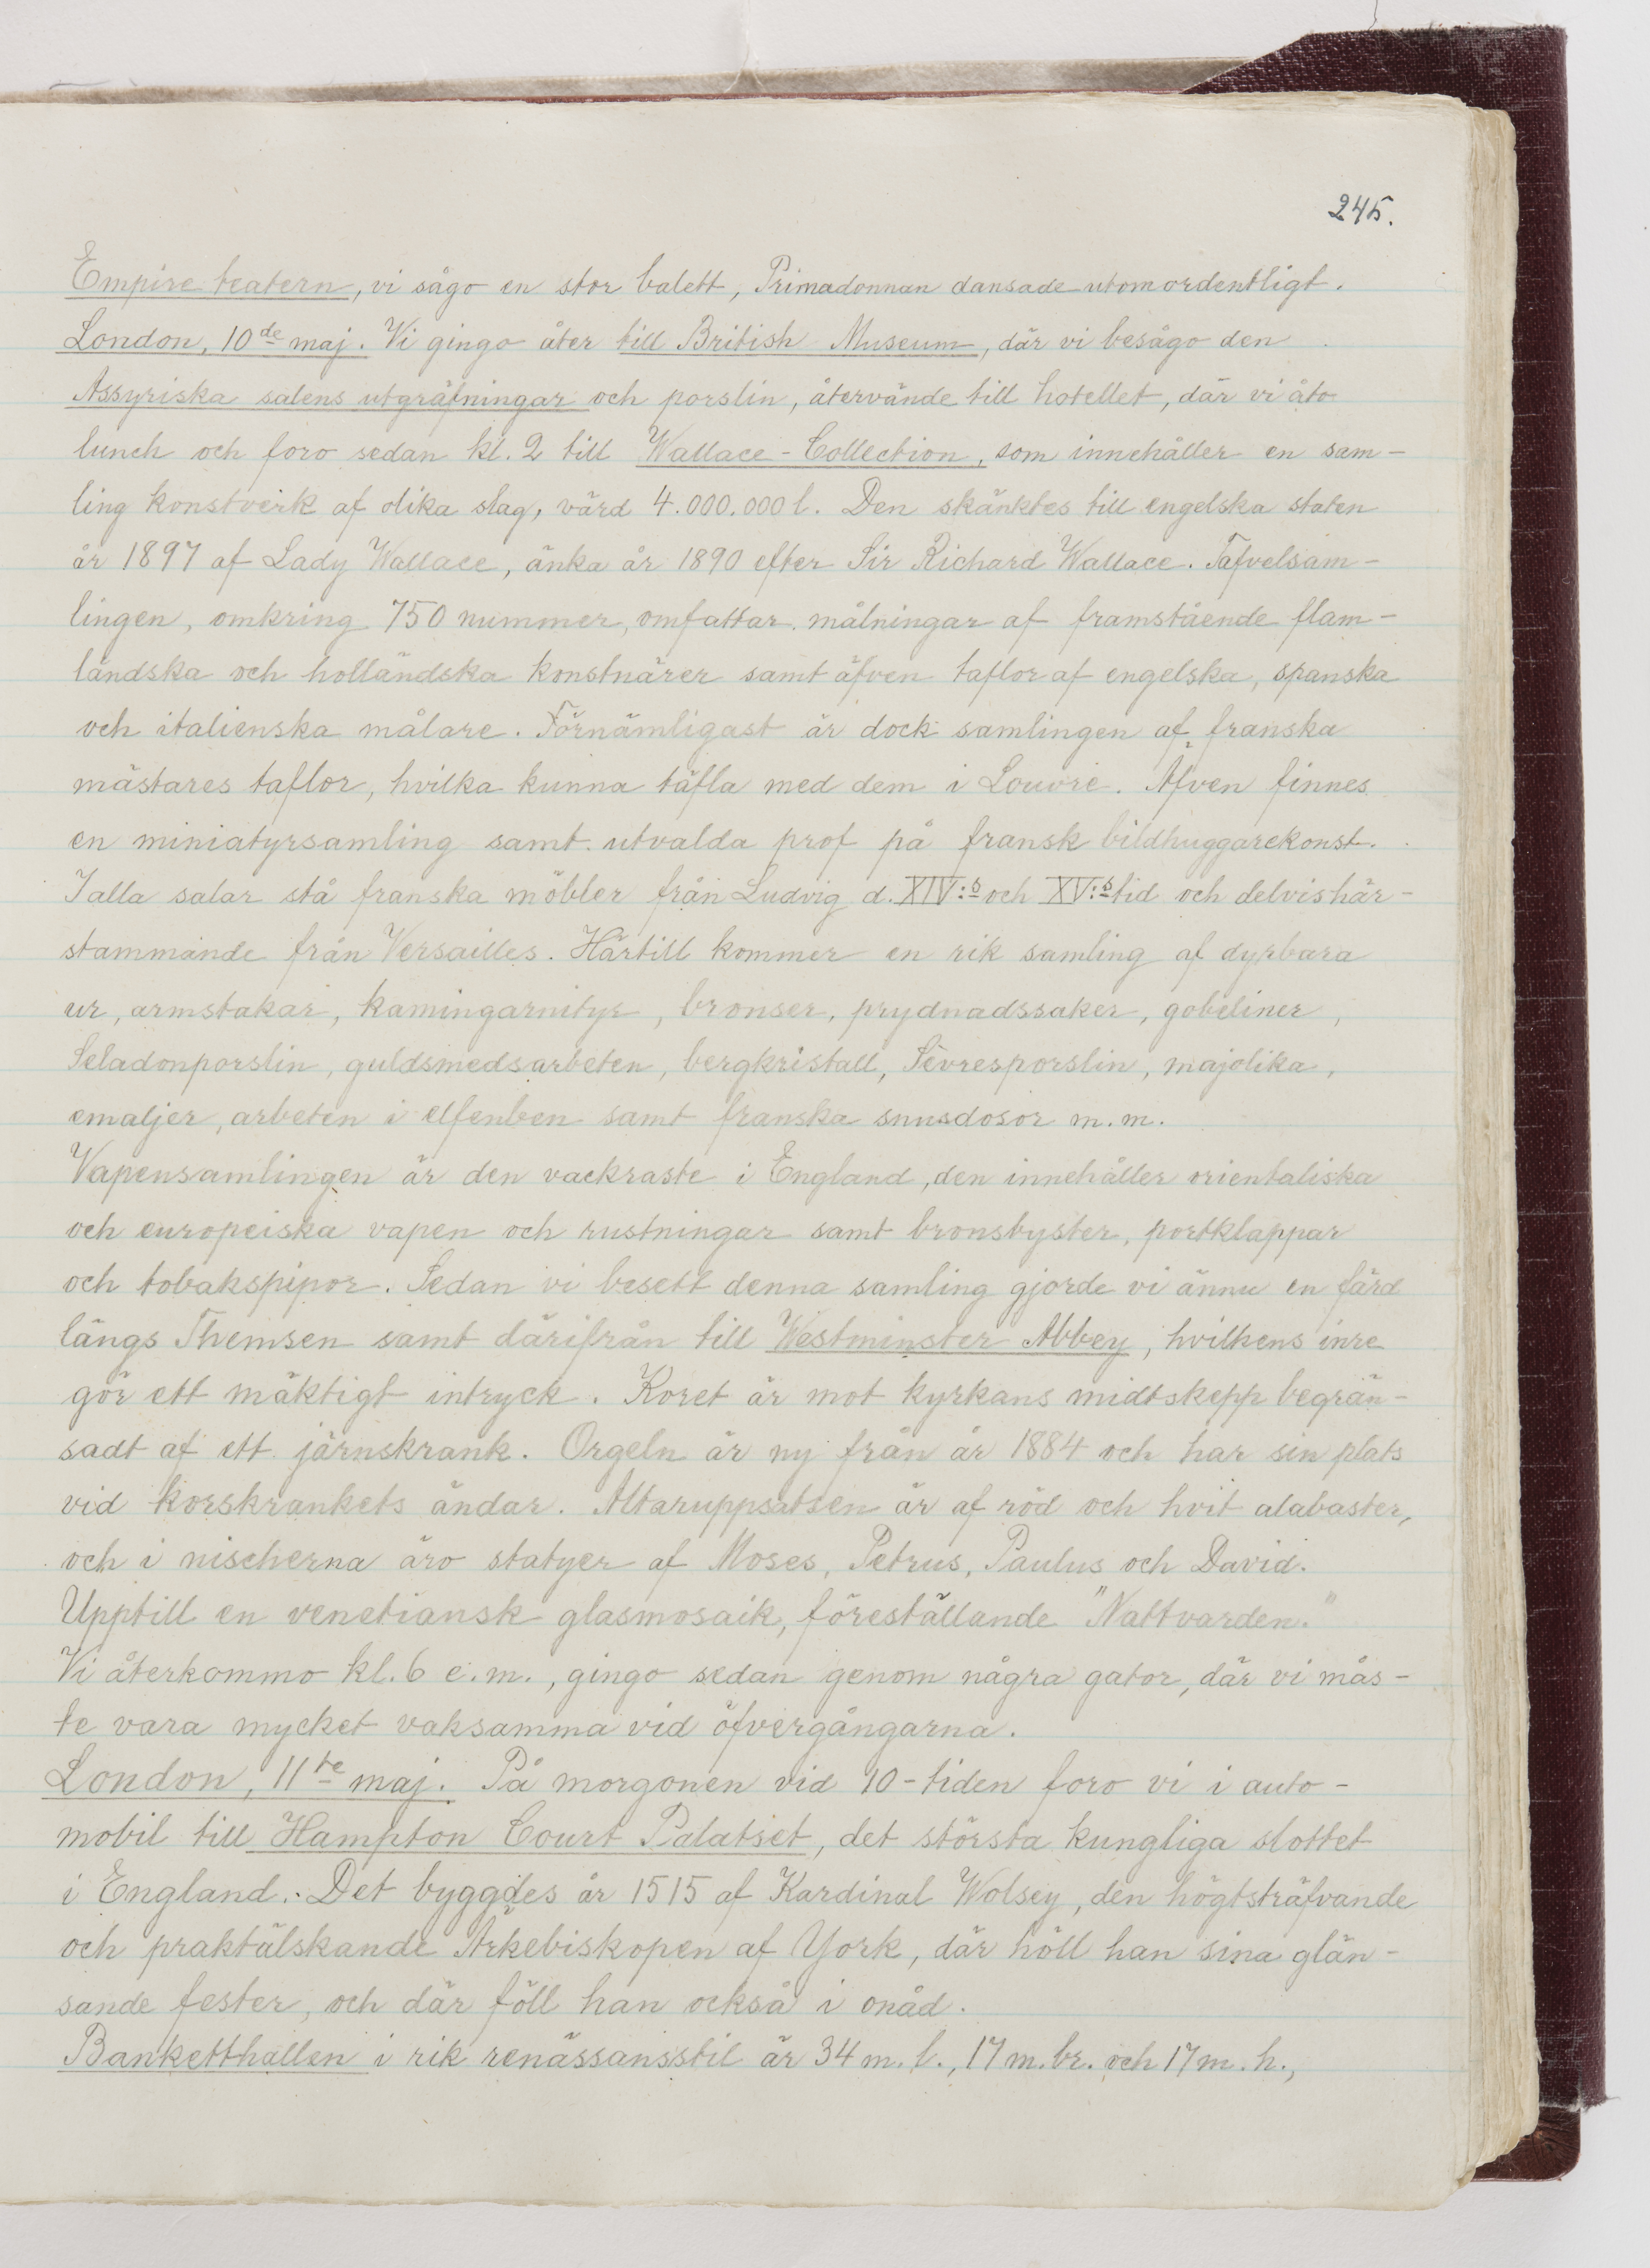 245.
Empire teatern, vi sågo en stor balett, Primadonnan dansade utomordentligt.
London, 10de maj. Vi gingo åter till British Museum, där vi besågo den
Assyriska salens utgräfningar och porslin, återvände till hotellet, där vi åto
lunch och foro sedan kl. 2 till Wallace-Collection, som innehåller en sam-
ling konstverk af olika slag, värd 4.000.000 l. Den skänktes till engelska staten
år 1897 af Lady Wallace, änka år 1890 efter Sir Richard Wallace. Tafvelsam-
lingen, omkring 750 nummer, omfattar målningar af framstående flam-
ländska och holländska konstnärer samt äfven taflor af engelska, spanska
och italienska målare. Förnämligast är dock samlingen af franska
mästares taflor, hvilka kunna täfla med dem i Louvre. Äfven finnes
en miniatyrsamling samt utvalda prof på fransk bildhuggarekonst.
I alla salar stå franska möbler från Ludvig d. XIV:s och XV:s tid och delvis här-
stammande från Versailles. Härtill kommer en rik samling af dyrbara
ur, armstakar, kamingarnityr, bronser, prydnadssaker, gobeliner,
Seladonporslin, guldsmedsarbeten, bergkristall, Sèvresporslin, majolika,
emaljer, arbeten i elfenben samt franska snusdosor m.m.
Vapensamlingen är den vackraste i England, den innehåller orientaliska
och europeiska vapen och rustningar samt bronsbyster, portklappar
och tobakspipor. Sedan vi besett denna samling gjorde vi ännu en färd
längs Themsen samt därifrån till Westminster Abbey, hvilkens inre
gör ett mäktigt intryck. Koret är mot kyrkans midtskepp begrän-
sadt af ett järnskrank. Orgeln är ny från år 1884 och har sin plats
vid korskrankets ändar. Altaruppsatsen är af röd och hvit alabaster,
och i nischerna äro statyer af Moses, Petrus, Paulus och David.
Upptill en venetiansk glasmosaik, föreställande "Nattvarden."
Vi återkommo kl. 6 e.m., gingo sedan genom några gator, där vi mås-
te vara mycket vaksamma vid öfvergångarna.
London, 11te maj. På morgonen vid 10-tiden foro vi i auto-
mobil till Hampton Court Palatset, det största kungliga slottet
i England. Det byggdes år 1515 af Kardinal Wolsey, den högtsträfvande
och praktälskande Ärkebiskopen af York, där höll han sina glän-
sande fester, och där föll han också i onåd.
Banketthallen i rik renässansstil är 34 m. l., 17 m. br. och 17 m. h.,